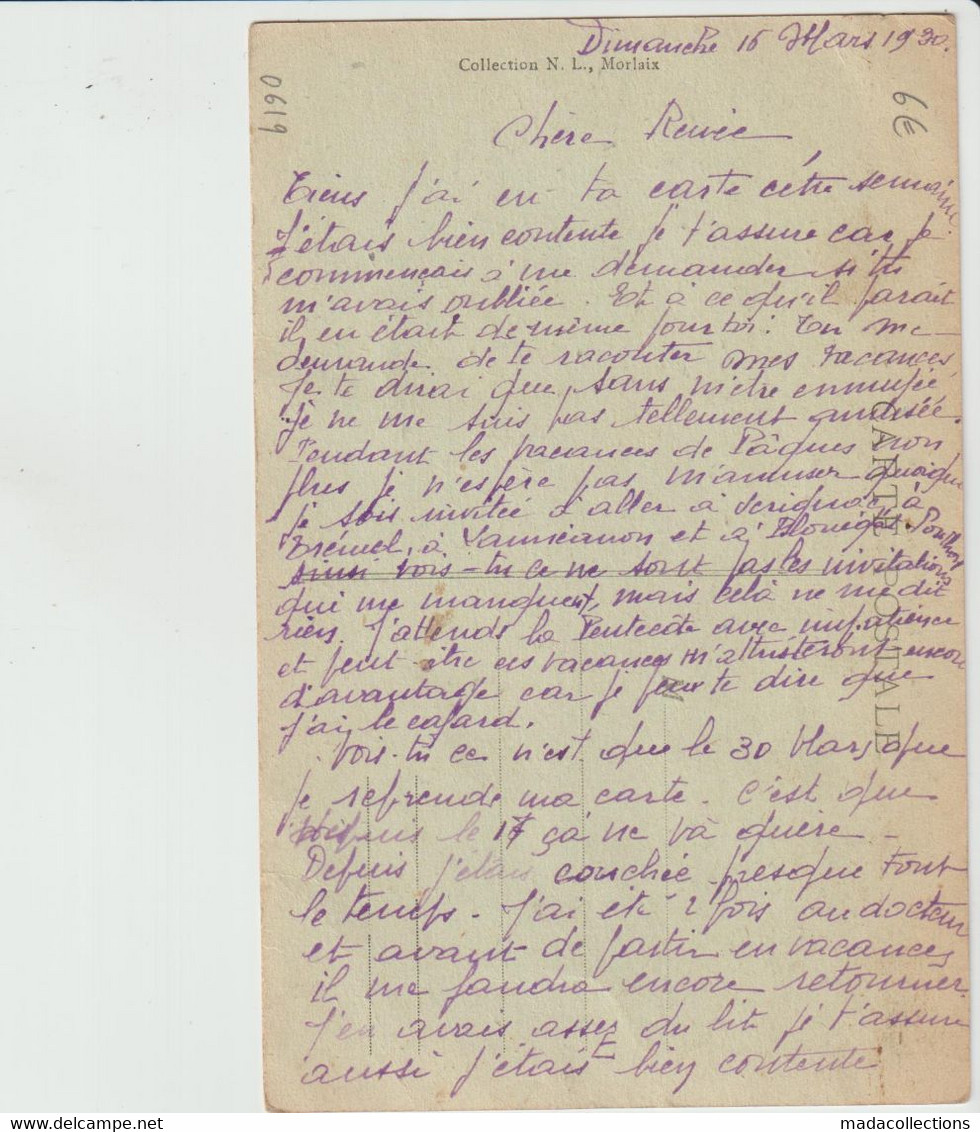 Dimanche 16 Mars 1930.
Collection N. L., Morlaix
0619
6E
Chère Renée,
Tiens j'ai eu ta carte cette semaine.
J'étais bien contente je t'assure car je
commençais à me demander si tu
m'avais oubliée. Et à ce qu'il parait
il en était de même pour toi. Tu me
demande de te raconter mes vacances,
Je te dirai que, sans m'être ennuyée
je ne me suis pas tellement amusée.
Pendant les vacances de Pâques non
plus je n'espère pas m'amuser quoique
je sois invitée d'aller à Sérignac, à
Trémel, à Lannéanou et à Plouégat
vois-tu ce ne sont pas les invitations
qui me manquent, mais celà ne me dit
rien. J'attends la Pentecôte avec impatience
et peut être ces vacances m'attristeront encore
d'avantage car je peux te dire que
j'ai le cafard.
Vois-tu ce n'est que le 30 Mars que
je reprends ma carte. C'est que
depuis le 17 çà ne và guère -
Depuis j'étais couchée presque tout
le temps - J'ai été 2 fois au docteur
et avant de partir en vacances
il me faudra encore retourner.
J'en avais assez du lit je t'assure
aussi j'étais bien contente
CARTE POSTALE
madacollections @ www.madacollections.com